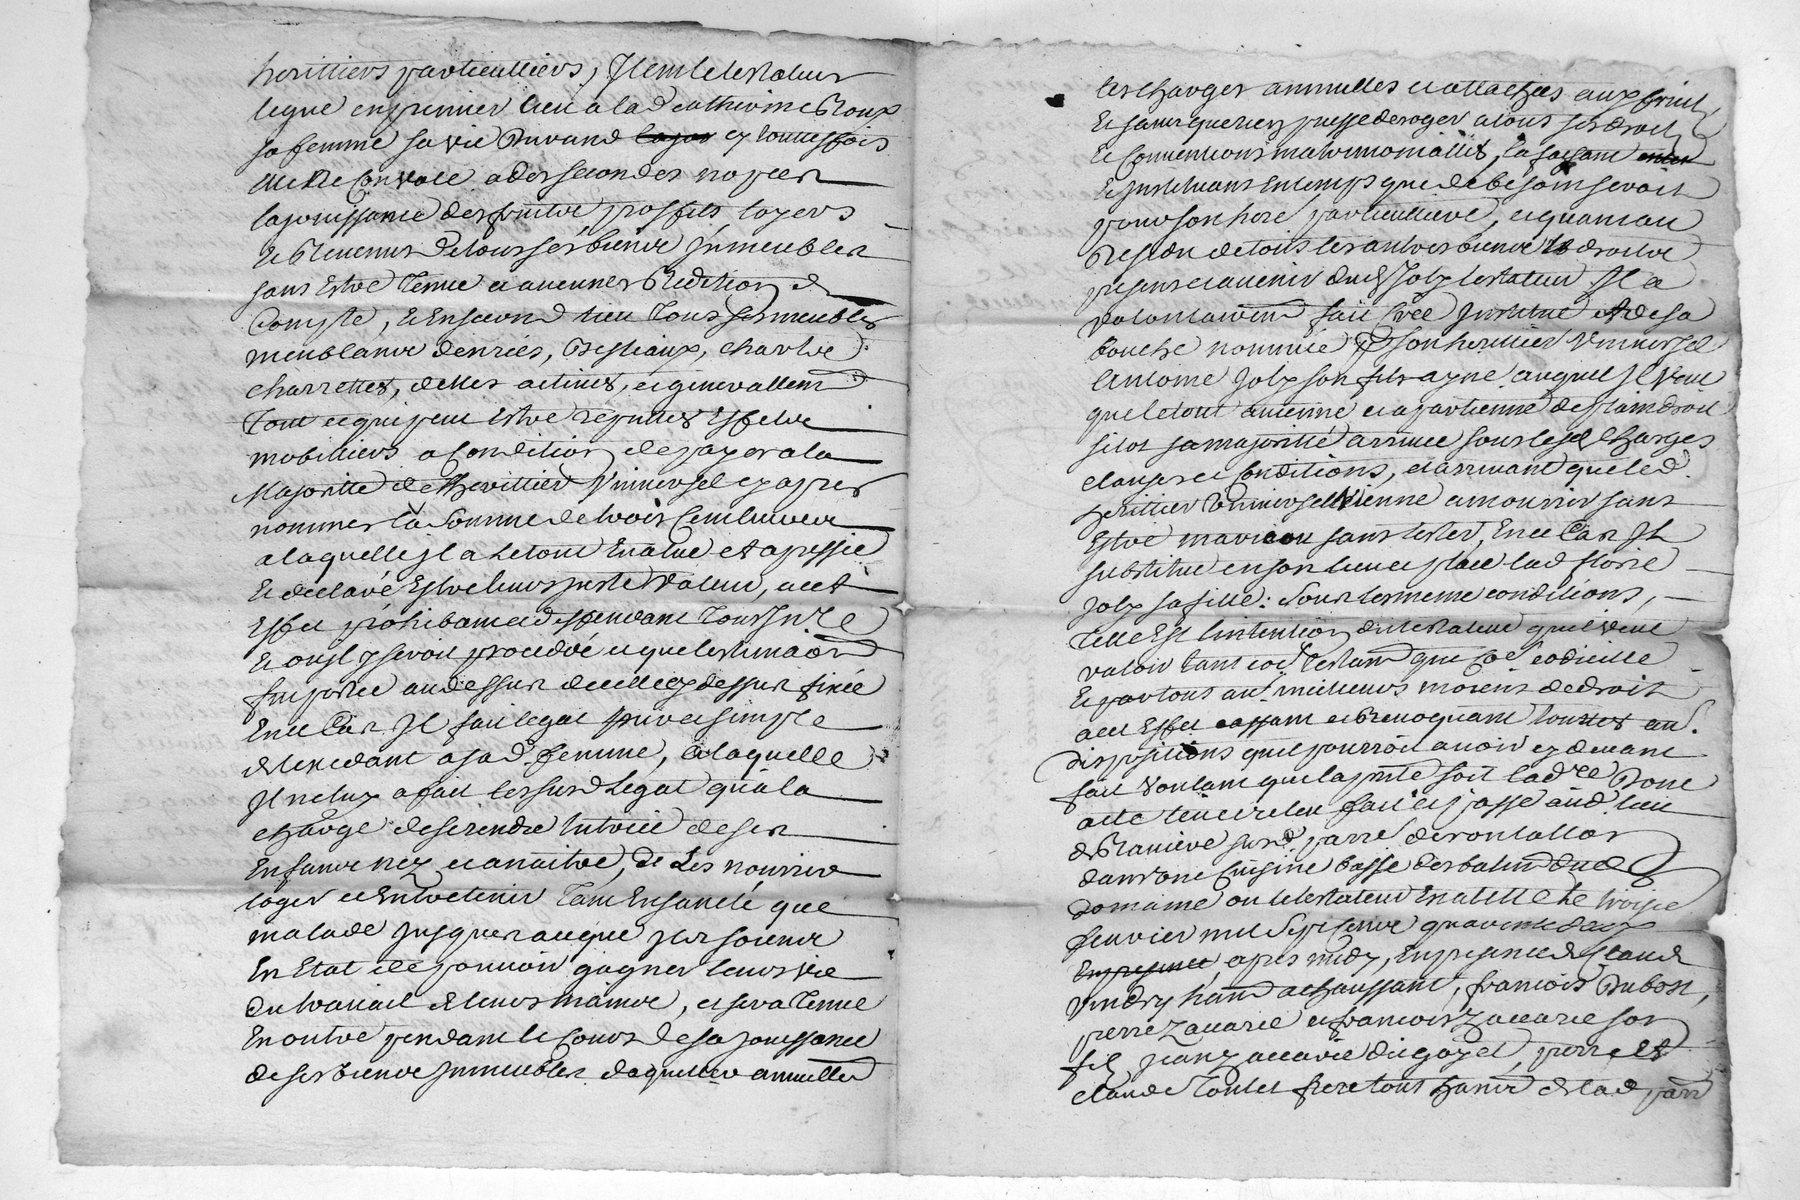 herittiers particulliers, Item le testateur
legue en premier lieu a lad catherine Roux
sa femme sa vie Durand et touttesfois
elle ne Convole a des secondes nopces
la jouissance des fruitz proffits loyers
& Revenus de tous ses biens Immeubles
sans Estre Tenue a aucunes Redition de
Compte, & En second lieu Tous ses meubles
meublants denrées, Bestiaux, chars
charrettes, dettes actives, et generallemt
Tout ce qui peut Estre reputes Effets
mobilliers a Condition de payer a la
Majorité de l'herittier Universel cy apres
nommer la Somme de trois Cent livres
a laquelle il a le tout Evalué et apressié
& declaré Estre leurs juste valeur, a cet
Effet prohibant et deffendant Tous Inre
& ou Il y seroit procedré et que lestimaon
fut portée au dessus de celle cy dessus fixée
En ce Cas Il fait legat pur et simple
de lexedant a sad. femme, a laquelle
Il ne luy a fait les susd Legat qu'a la
charge de se rendre tutrice de ses
Enfants nez et a naitre, de Les nourrir
loger et Entretenir Tant En santé que
malade Jusques a ce que Ils soient
En Etat de pouvoir gagner leurs vie
du travail de leurs mains, et sera Tenue
En outre pendant le Cours de sa jouissance
de ses biens Immeubles d'aquitter annuellemt
les charges annuelles et attachées aux fruits
& sans que rien puisse deroger a tous ses droits
& Conventions matrimonialles, la faisant
& Instituant En temps que de besoin seroit
pour son here particulliere, et quant au
Residu de tous les autres biens & droits
presents et avenir dud Joly testateur Il a
volontairemt fait Créé Institué et de sa
bouche nommée pr son herittier Universel
Antoine Joly son fils ayné auquel Il veut
que le tout avienne et apartienne de plain droit
sitot sa majoritté arrivée sous lesd Charges
clauses et Conditions, et arrivant que led.
herittier Universel Vienne a mourrir sans
Estre marié ou sans tester, En ce Cas Il
substitue en son lieu et place lad florie
Joly sa fille: Sous les meme conditions,
Telle Est lintention du testateur quil veut
valoir tant coe Testamt que Coe codicille
& par tous aue meilleurs moyens de droit
a cet Effet cassant et Revoquant touttes aue
dispositions quil pourroit avoir cy devant
fait voulant que la pnte soit lad re Dont
acte
de Planieve susd parre de
dans une Cuisine basse des batimt dud
domaine ou le testateur En alitté le troise
fevrier mil Sept cents quarante deux
apres midy, En presence de Claude
Vindry hant a chaussant, francois Dubost,
pierre Zacarie et francois Zacarie son
fils Jean Zacarie dit gayet, pierre et
claude Toulet frere tous hants de lad parre